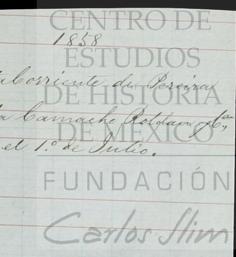 CENTRO DE
1858
ESTUDIOS
de Pereira
DE HISTORIA
Camacho Roldan y Ca
DE MÉXICO
el 1.º de Julio.
FUNDACIÓN
Carlos Slim